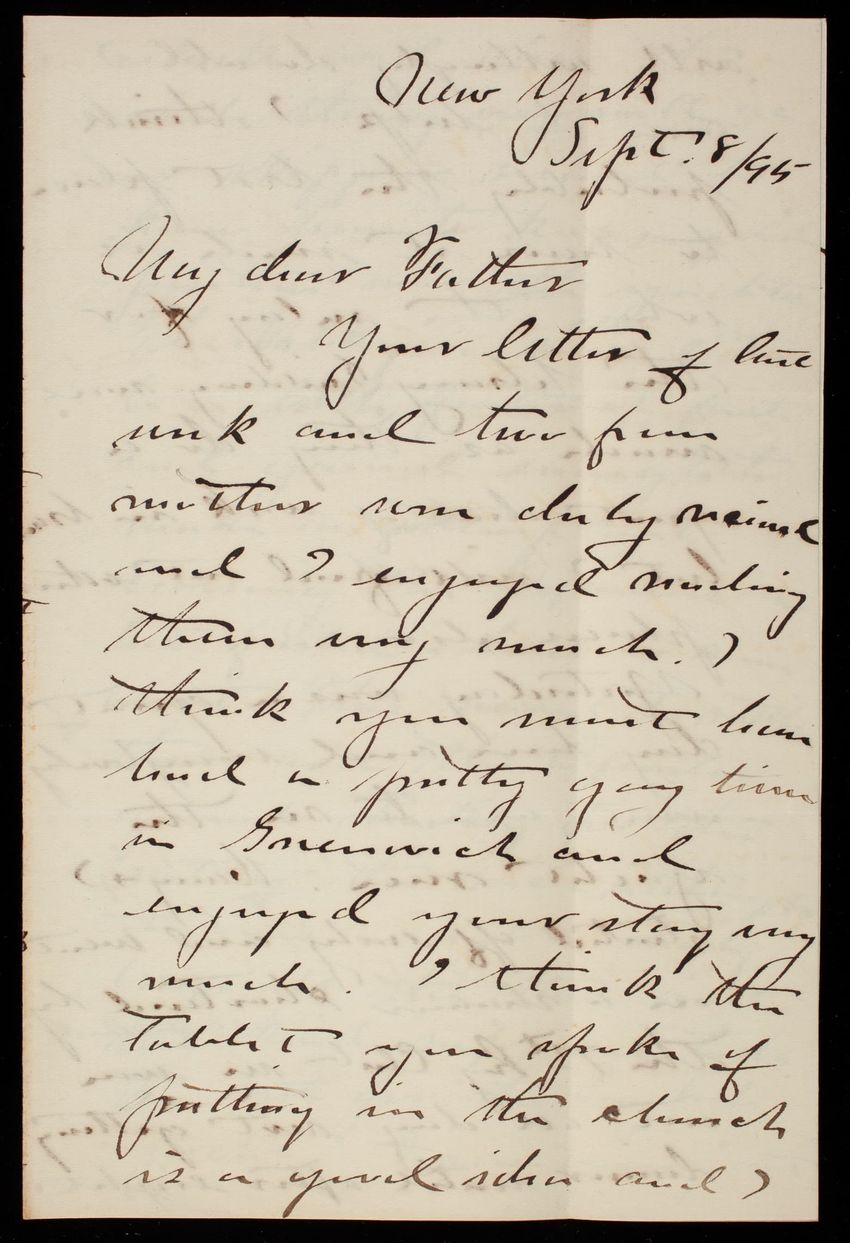 New York
Sept. 8/95
My dear Father
Your letter of last
week and two from
mother were duly received
and I enjoyed reading
them very much. I
think you must have
had a pretty gay time
in Greenwich and
enjoyed your stay very
much. I think the
Tablet you spoke of
putting in the church
is a good idea and I